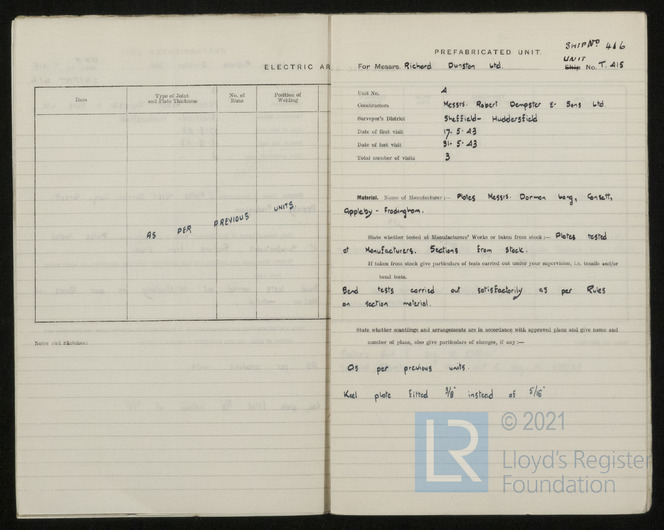 ELECTRIC AR
Date
Type of Joint
and Plate Thickness
No. of
Runs
Position of
Welding
AS PER PREVIOUS UNITS.
Notes and sketches:
SHIP No 466
PREFABRICATED UNIT.
UNIT
For Messrs. Richard Dunston Ltd. Ship No. T. 415
Unit No. 4
Constructors Messrs. Robert Dempster & Sons Ltd
Surveyor's District Sheffield - Huddersfield
Date of first visit 17. 5. 43
Date of last visit 31. 5. 43
Total number of visits 3
Material. Name of Manufacturer:— Plates Messrs. Dorman Long, Consett,
Appleby - Frodingham.
State whether tested at Manufacturers' Works or taken from stock:— Plates tested
at Manufacturers. Sections from stock.
If taken from stock give particulars of tests carried out under your supervision, i.e. tensile and/or
bend tests.
Bend tests carried out satisfactorily as per Rules
on section material.
State whether scantlings and arrangements are in accordance with approved plans and give name and
number of plans, also give particulars of changes, if any:—
As per previous units.
Keel plate fitted 3/8" instead of 5/16"
© 2021
LR
Lloyd's Register
Foundation